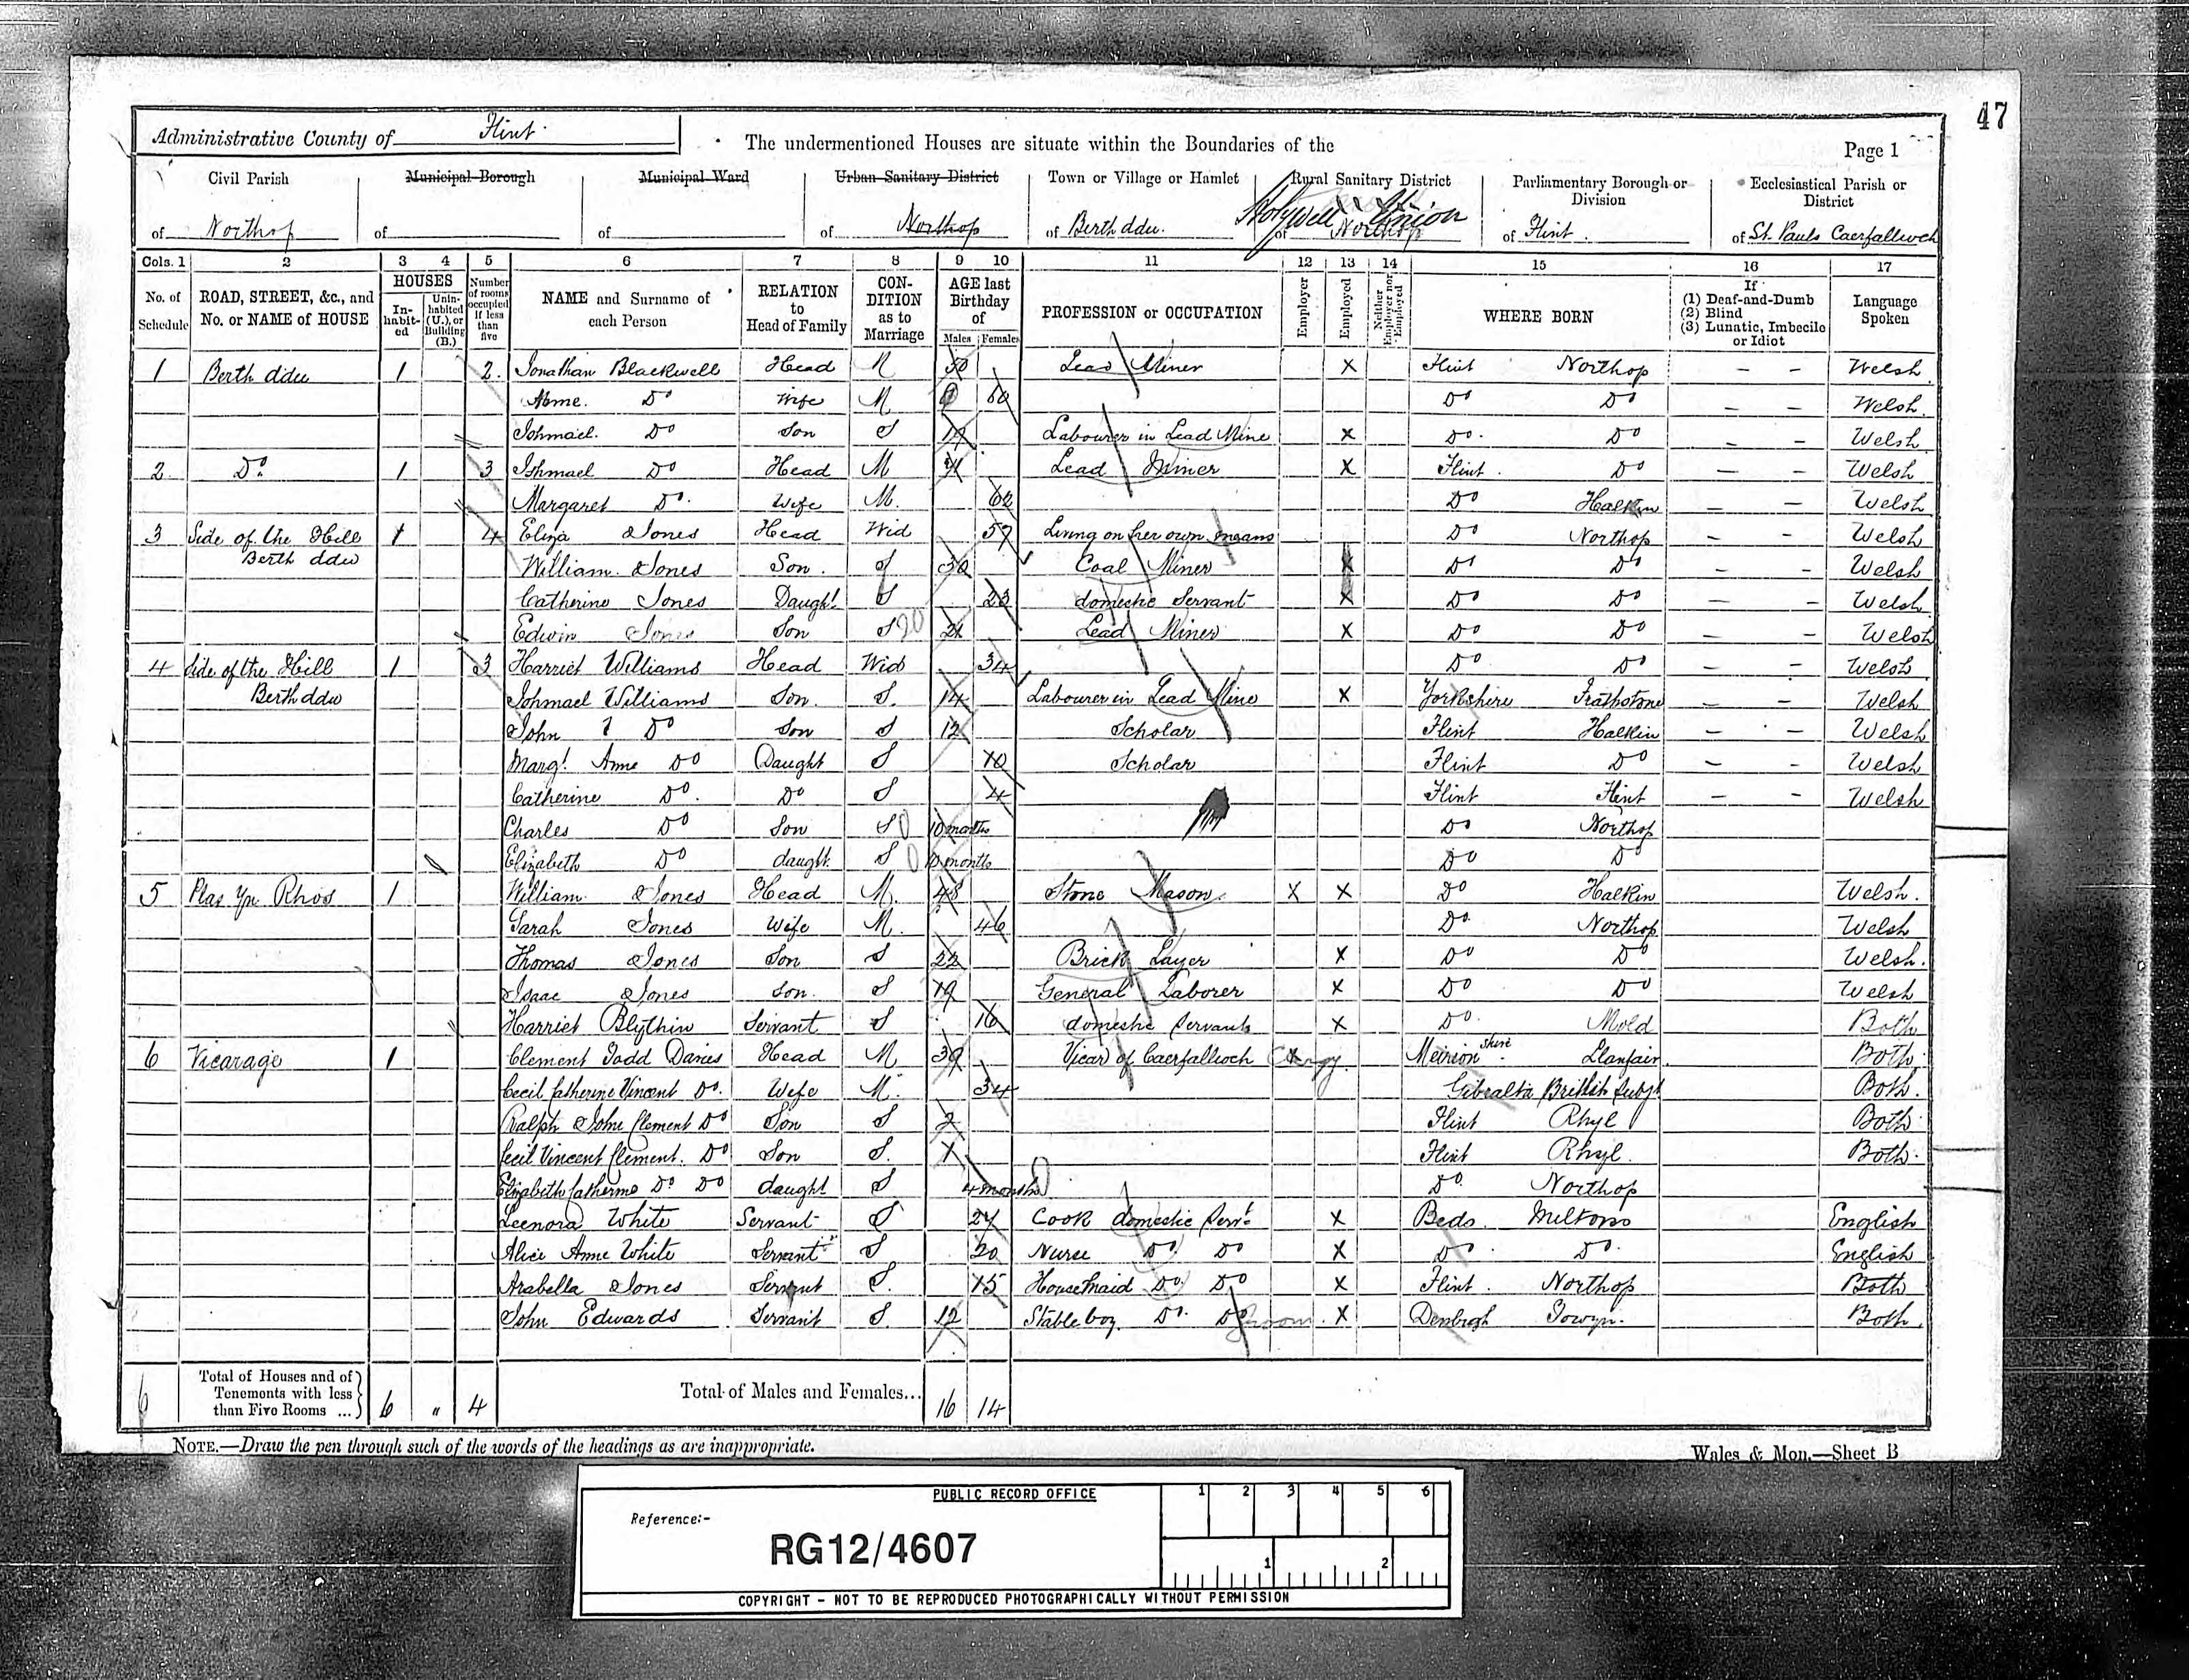 47
Administrative County of Flint
The undermentioned Houses are situate within the Boundaries of the
Page 1
Civil Parish of Northop
Municipal Borough of
Municipal Ward of
Urban Sanitary District of Northop
Town or Village or Hamlet of Berth ddu.
Rural Sanitary District of Northop Holywell Union
Parliamentary Borough or Division of Flint
Ecclesiastical Parish or District of St. Pauls Caerfallwch
Cols. 1 2 3 4 5 6 7 8 9 10 11 12 13 14 15 16 17
No. of Schedule
ROAD, STREET, &c., and No. or NAME of HOUSE
HOUSES
Inhabited
Uninhabited (U.), or Building (B.)
Number of rooms occupied if less than five
NAME and Surname of each Person
RELATION to Head of Family
CONDITION as to Marriage
AGE last Birthday of
Males Females
PROFESSION or OCCUPATION
Employer
Employed
Neither Employer nor Employed
WHERE BORN
If (1) Deaf-and-Dumb (2) Blind (3) Lunatic, Imbecile or Idiot
Language Spoken
1 Berth ddu 1 2. Jonathan Blackwell Head M 50 Lead Miner X Flint Northop – – Welsh
Anne. Do Wife M 60 Do Do – – Welsh.
Ishmael. Do Son S 19 Labourer in Lead Mine X Do. Do – – Welsh
2 Do. 1 3 Ishmael Do Head M Lead Miner X Flint. Do – – Welsh
Margaret Do. Wife M. 62 Do Halkin – – Welsh
3 Side of the Hill Berth ddu 1 4 Eliza Jones Head Wid 57 Living on her own means Do Northop – – Welsh
William. Jones Son. S 30 Coal Miner X Do Do – – Welsh
Catherine Jones Daught. S 23 domestic Servant X Do Do – – Welsh
Edwin Jones Son S 20 21 Lead Miner X Do Do – – Welsh
4 Side of the Hill Berth ddu 1 3 Harriet Williams Head Wid 34 Do Do – – Welsh
Ishmael Williams Son. S. 14 Labourer in Lead Mine X Yorkshire – – Welsh
John Do Son S 12 Scholar Flint Halkin – – Welsh
Margt. Anne Do Daught S 10 Scholar Flint Do – – Welsh
Catherine Do. Do S 4 Flint Flint – – Welsh
Charles Do Son S 0 10 months Do Northop
Elizabeth Do daught. S 0 10 months Do Do
5 Plas Yn Rhos 1 William Jones Head M. 48 Stone Mason. X X Do Halkin Welsh.
Sarah Jones Wife M. 46 Do. Northop Welsh
Thomas Jones Son S 22 Brick Layer X Do Do Welsh.
Isaac Jones Son. S 19 General Laborer X Do Do Welsh
Harriet Blythin Servant S 16 domestic Servant X Do. Mold Both
6 Vicarage 1 Clement Todd Davies Head M 39 Vicar of Caerfallwch Clergy. X Meirionshire. Llanfair. Both.
Cecil Catherine Vincent Do. Wife M. 34 Gibralta British Subjt Both.
Ralph John Clement Do Son S 2 Flint Rhyl Both.
Cecil Vincent Clement. Do Son S. 1 Flint Rhyl. Both.
Elizabeth Catherine Do Do daught S 4 months 0 Do. Northop
Leenora White Servant S 24 Cook domestic Servt. X Beds. English
Alice Anne White Servant S 20 Nurse Do. Do X Do. Do. English
Arabella Jones Servant S. 15 Housemaid Do. Do X Flint. Northop Both
John Edwards Servant S. 12 Stable boy. Do. Do Groom. X Denbigh Towyn. Both.
6 Total of Houses and of Tenements with less than Five Rooms ... 6 " 4 Total of Males and Females... 16 14
NOTE.—Draw the pen through such of the words of the headings as are inappropriate.
Wales & Mon.—Sheet B
PUBLIC RECORD OFFICE
Reference:-
RG12/4607
1 2 3 4 5 6
1 2
COPYRIGHT - NOT TO BE REPRODUCED PHOTOGRAPHICALLY WITHOUT PERMISSION